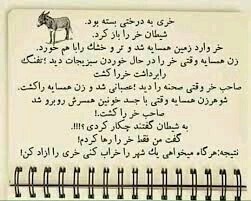 خری به درختی بسته بود.
شیطان خر را باز کرد.
خر وارد زمین همسایه شد و تر و خشک راباهم خورد.
زن همسایه وقتی خر را در حال خوردن سبزیجات دید ؛تفنگ
رابرداشت خرراکشت
صاحب خر وقتی صحنه را دید ؛عصبانی شد و زن همسایه راکشت.
شوهرزن همسایه وقتی با جسد خونین همسرش روبرو شد
صاحب خر را کشت.!
به شیطان گفتند چکار کردی ؟!!!.
گفت من فقط خر را رها کردم!
نتیجه:هرگاه میخواهی یك شهر را خراب کنی خری را ازاد کن!